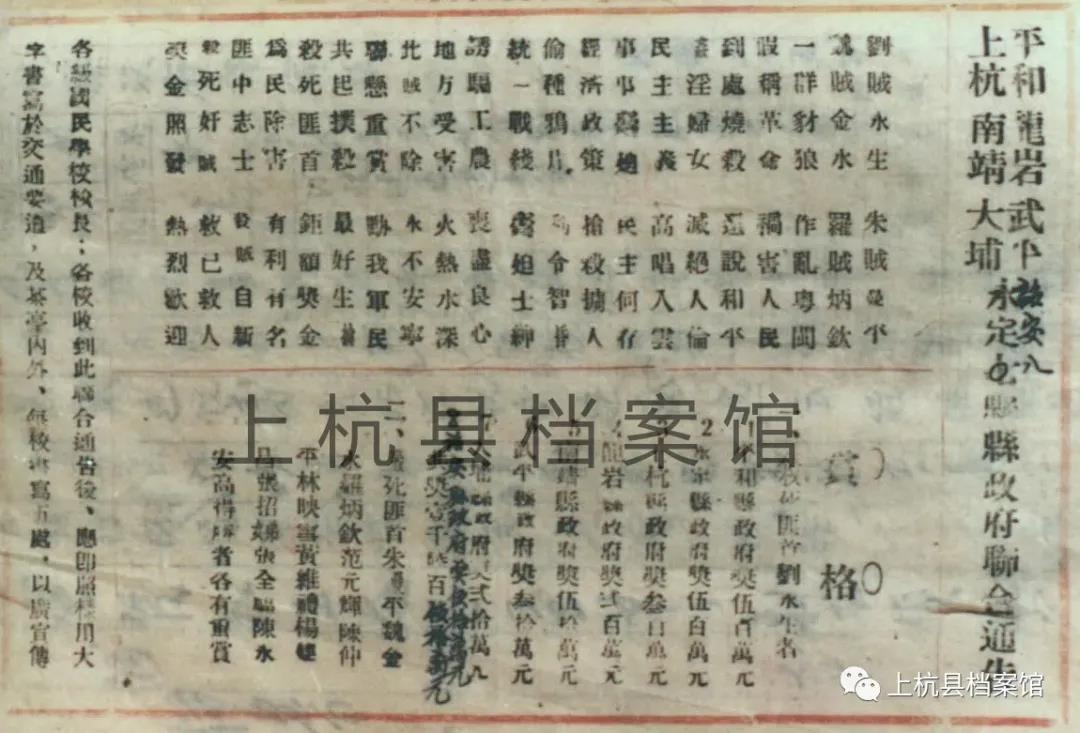 平和龍岩武平詔安八
上杭南靖大埔永定縣縣政府聯合通告
劉賊永生 朱賊曼平
魏賊金水 羅賊炳欽
一群豺狼 作亂粵閩
假稱革命 禍害人民
到處燒殺 還說和平
姦淫婦女 滅絕人倫
民主主義 高唱入雲
事事 民主何存
經濟政策 搶殺擄人
偷種鴉片 令智昏
統一戰綫 士紳
誘騙工農 喪盡良心
地方受害 火熱水深
此賊不除 永不安寧
聯懸重賞 勸我軍民
共起撲殺 最好生擒
殺死匪首 鉅額奬金
為民除害 有利有名
匪中志士 殺賊自新
殺死奸賊 救己救人
奬金照發 熱烈歡迎
賞格
一、殺死匪首劉永生者
1平和縣政府奬伍百萬元
2永定縣政府奬伍百萬元
杭縣政府奬叁百萬元
龍岩縣政府奬弍百萬元
南靖縣政府奬伍拾萬元
武平縣政府奬叁拾萬元
大埔縣政府奬弍拾萬元
詔安縣政府奬
二、殺死匪首朱曼平魏金
水羅炳欽范元輝陳仲
平林映雪黃維禮楊
昌張招娣張全福陳永
安高 者各有重賞
各級國民學校校長：各校收到此聯合通告後、應即照樣用大
字書寫於交通要道，及茶亭內外、每校書寫五處，以廣宣傳
上杭县档案馆
上杭县档案馆